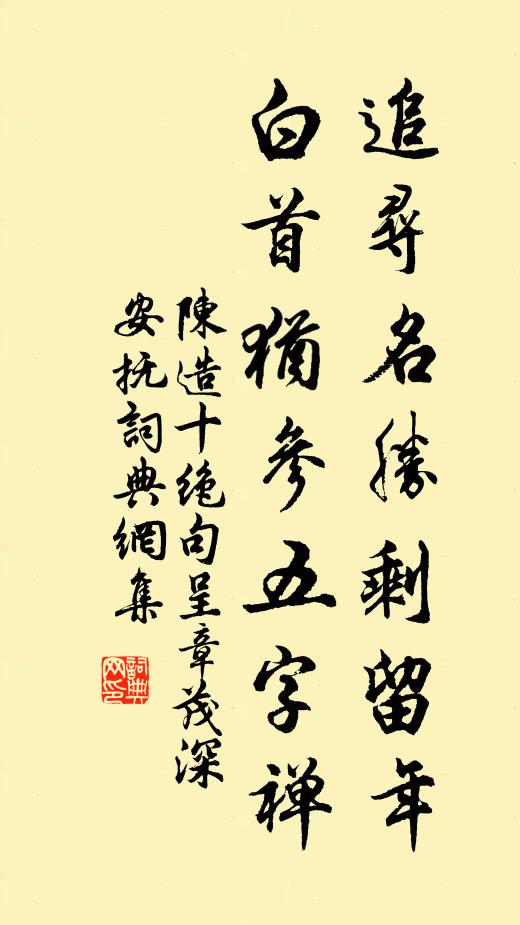 追尋名勝剩留年
白首猶參五字禅
陳造十絶句呈章茂深
安抚詞典網集
詞典網印